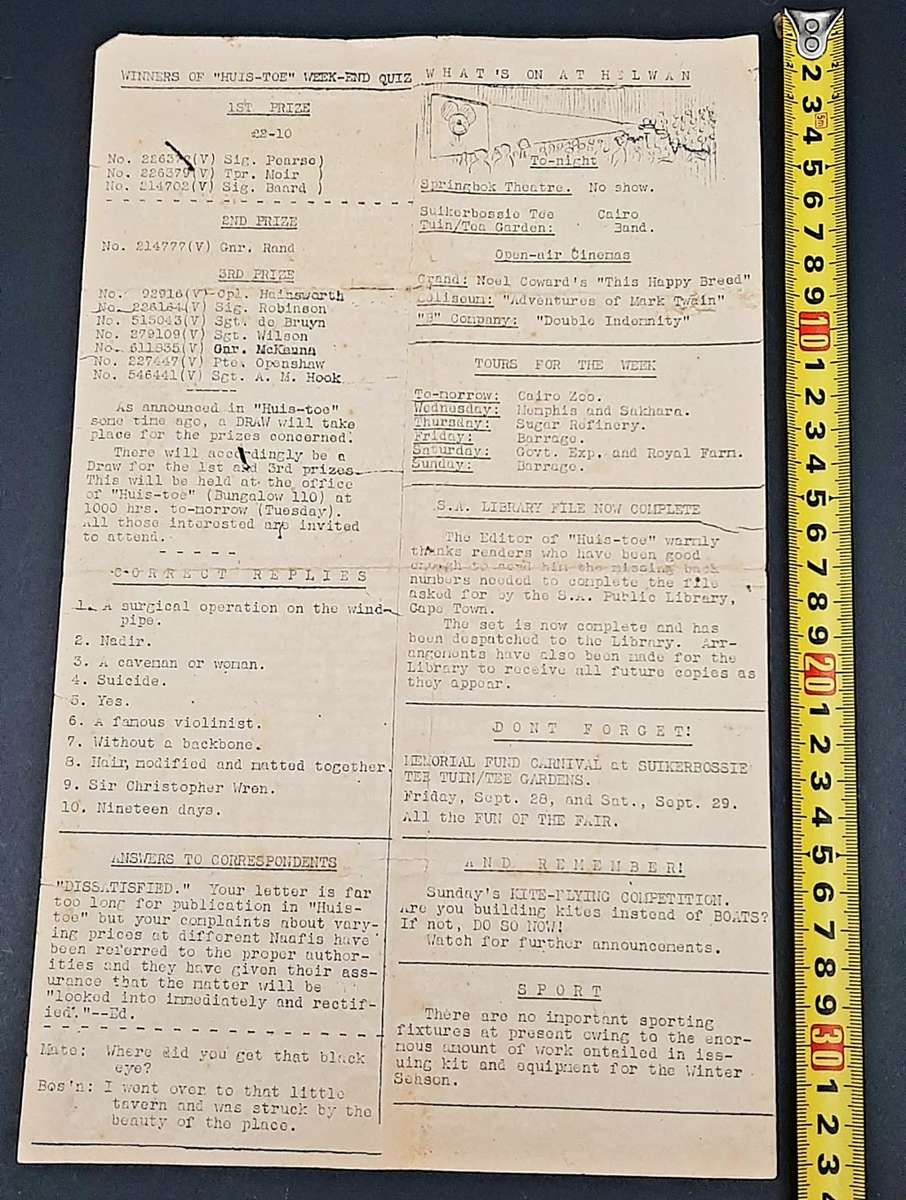 WINNERS OF "HUIS-TOE" WEEK-END QUIZ
1ST PRIZE
£2-10
No. (V) Sig. Pearse)
No. 226379(V) Tpr. Moir )
No. 214702(V) Sig. Baard )
2ND PRIZE
No. 214777(V) Gnr. Rand
3RD PRIZE
No. 92916(V) Cpl. Hainsworth
No. 226164(V) Sig. Robinson
No. 515043(V) Sgt. de Bruyn
No. 279109(V) Sgt. Wilson
No. 611835(V) Gnr. McKanna
No. 227447(V) Pte. Openshaw
No. 546441(V) Sgt. A. M. Hook
As announced in "Huis-toe"
some time ago, a DRAW will take
place for the prizes concerned.
There will accordingly be a
Draw for the 1st and 3rd prizes.
This will be held at the office
of "Huis-toe" (Bungalow 110) at
1000 hrs. to-morrow (Tuesday).
All those interested are invited
to attend.
CORRECT REPLIES
1. A surgical operation on the wind-
pipe.
2. Nadir.
3. A caveman or woman.
4. Suicide.
5. Yes.
6. A famous violinist.
7. Without a backbone.
8. Hair, modified and matted together.
9. Sir Christopher Wren.
10. Nineteen days.
ANSWERS TO CORRESPONDENTS
"DISSATISFIED." Your letter is far
too long for publication in "Huis-
toe" but your complaints about vary-
ing prices at different Naafis have
been referred to the proper author-
ities and they have given their ass-
urance that the matter will be
"looked into immediately and rectif-
ied."--Ed.
Mate: Where did you get that black
eye?
Bos'n: I went over to that little
tavern and was struck by the
beauty of the place.
WHAT'S ON AT HELWAN
To-night
Springbok Theatre. No show.
Suikerbossie Tee Cairo
Tuin/Tea Garden: Band.
Open-air Cinemas
Grand: Noel Coward's "This Happy Breed"
Coliseum: "Adventures of Mark Twain"
"B" Company: "Double Indemnity"
TOURS FOR THE WEEK
To-morrow: Cairo Zoo.
Wednesday: Memphis and Sakhara.
Thursday: Sugar Refinery.
Friday: Barrage.
Saturday: Govt. Exp. and Royal Farm.
Sunday: Barrage.
S.A. LIBRARY FILE NOW COMPLETE
The Editor of "Huis-toe" warmly
thanks readers who have been good
enough to send him the missing back
numbers needed to complete the file
asked for by the S.A. Public Library,
Cape Town.
The set is now complete and has
been despatched to the Library. Arr-
angements have also been made for the
Library to receive all future copies as
they appear.
DONT FORGET!
MEMORIAL FUND CARNIVAL at SUIKERBOSSIE
TEE TUIN/TEE GARDENS.
Friday, Sept. 28, and Sat., Sept. 29.
All the FUN OF THE FAIR.
AND REMEMBER!
Sunday's KITE-FLYING COMPETITION.
Are you building kites instead of BOATS?
If not, DO SO NOW!
Watch for further announcements.
SPORT
There are no important sporting
fixtures at present owing to the enor-
mous amount of work entailed in iss-
uing kit and equipment for the Winter
Season.
2
3
5m
4
5
6
7
8
9
10
1
2
3
4
5
6
7
8
9
20
1
2
3
4
5
6
7
8
9
30
1
2
3